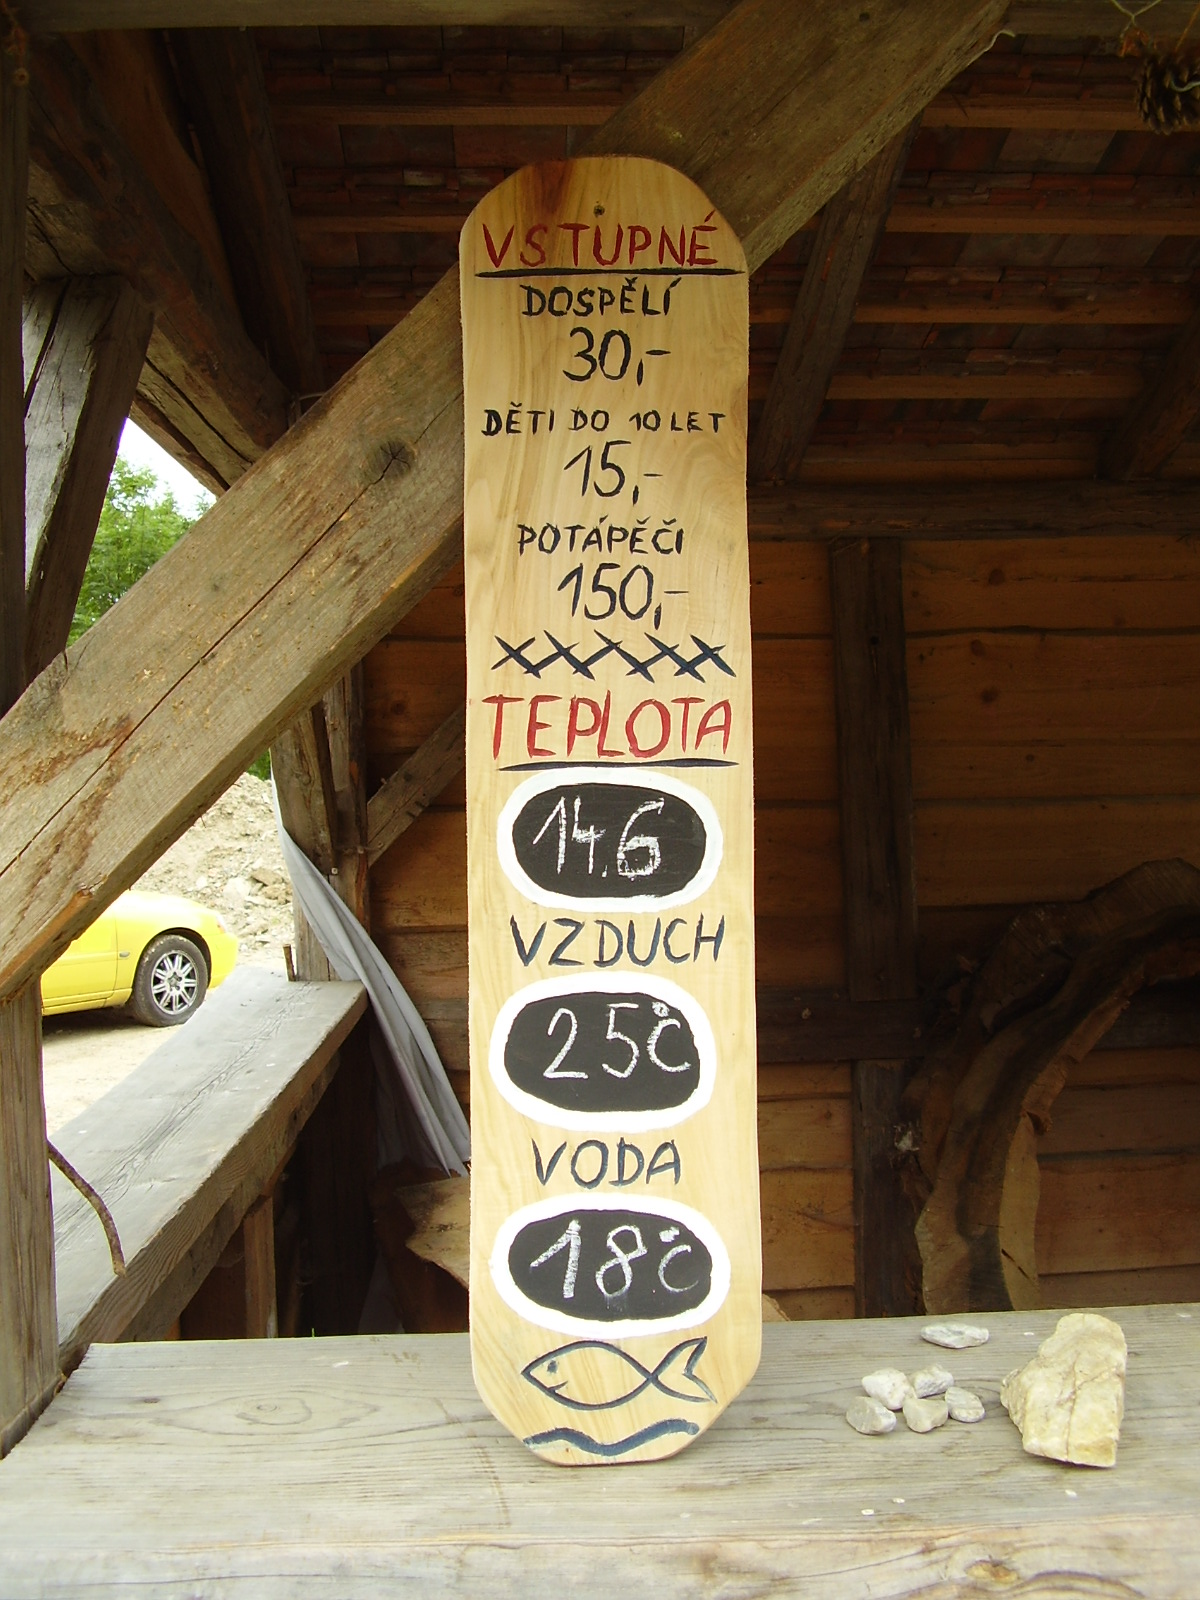 VSTUPNÉ
DOSPĚLÍ
30,-
DĚTI DO 10 LET
15,-
POTÁPĚČI
150,-
TEPLOTA
14.6
VZDUCH
25°C
VODA
18°C